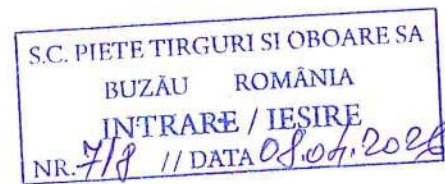 S.C. PIETE TIRGURI SI OBOARE SA
BUZĂU ROMÂNIA
INTRARE / IESIRE
NR. 718 // DATA 08.04.2026